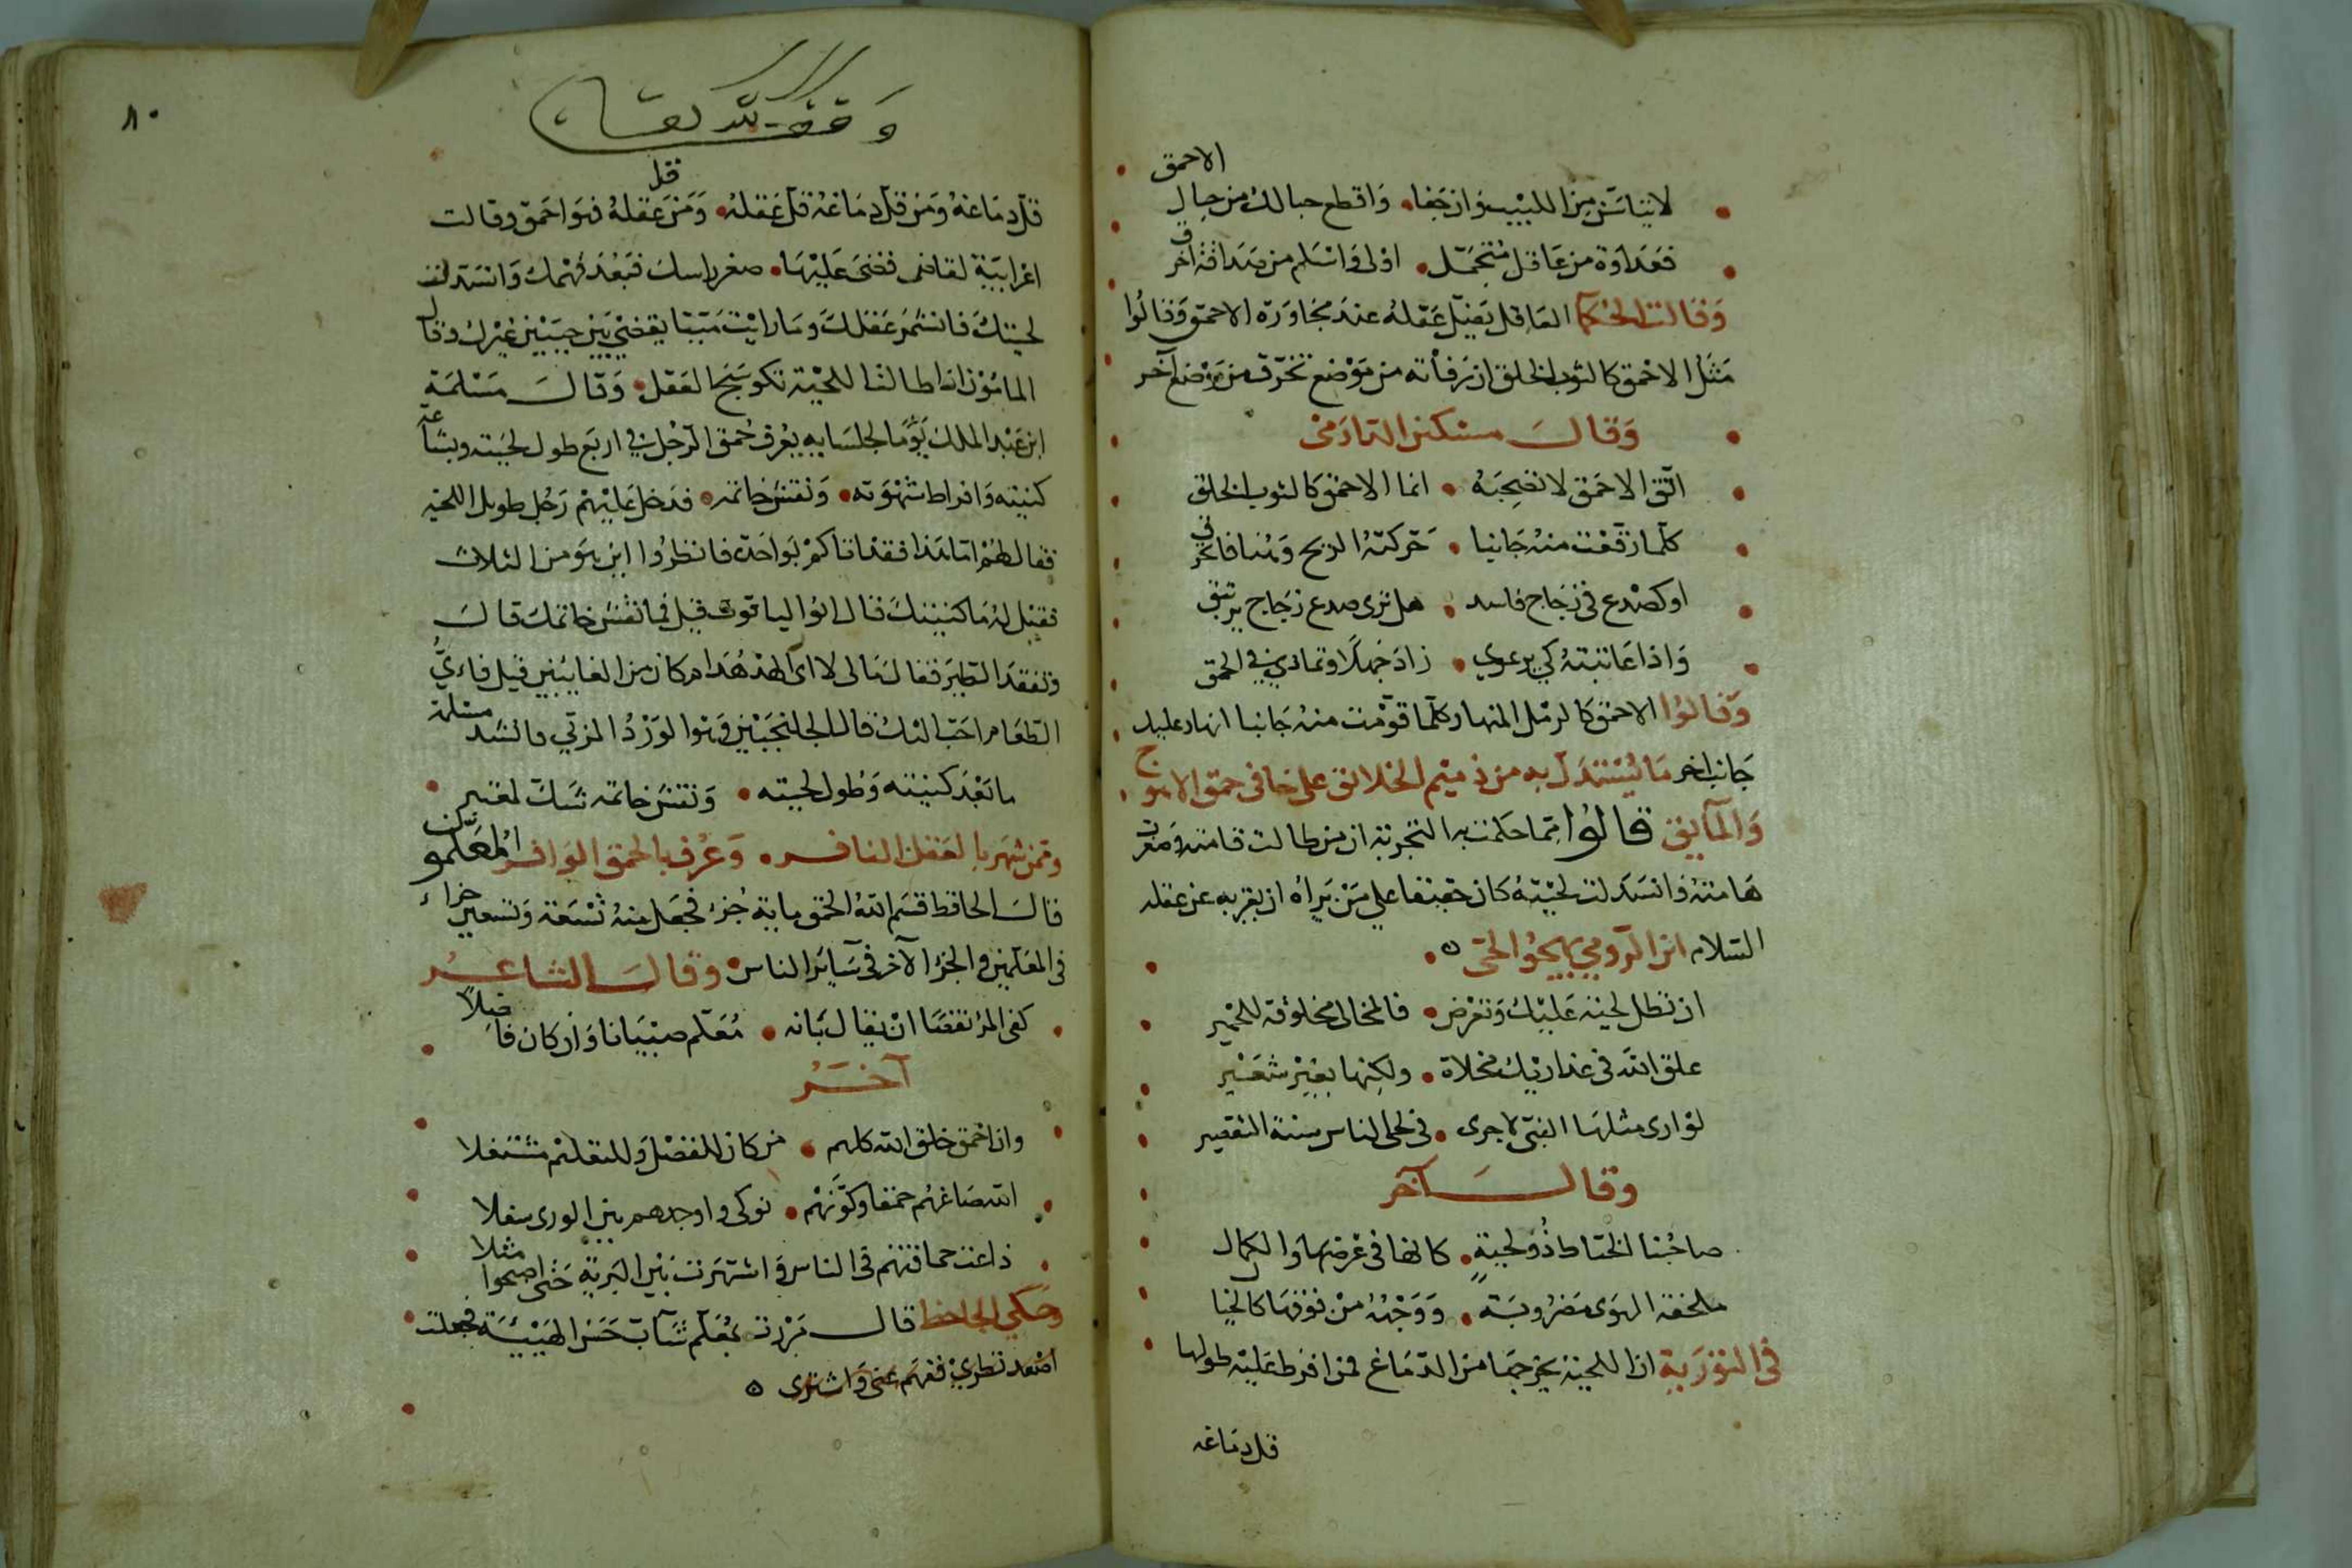 الاحمق
لا تيأسن من اللبيب وان جفا واقطع حبالك من حبال
فعداوة من عاقل متجمل اولى واسلم من صداقة اخرق
وقالت الحكما العاقل يضل عقله عند مجاورة الاحمق وقالوا
مثل الاحمق كالثوب الخلق ان رفأته من موضع تخرق من موضع آخر
وقال مسكين الدارمى
اتق الاحمق لا تصحبه انما الاحمق كالثوب الخلق
كلما رقعت منه جانبا حركته الريح وهنا فانخرق
او كصدع فى زجاج فاسد هل ترى صدع زجاج يرتتق
واذا عاتبته كي يرعوي زاد جهلا وتمادي في الحمق
وقالوا الاحمق كالرمل المنهار كلما قومت منه جانبا انهار عليك
جانب اخر ما يستدل به من ذميم الخلائق على خافى حمق الاهوج
والمآيق قالوا مما حكمت به التجربة ان من طالت قامته وصغرت
هامته وانسدلت لحيته كان حقيقا علي من يراه ان يقريه عن عقله
السلام ابن الرومي يهجوا لحتى
ان تطل لحية عليك وتعرض فالمخالى مخلوقة للحمير
علق الله فى عذاريك مخلاة ولكنها بغير شعير
لو ارى مثلها النبى لاجرى فى لحى الناس سنة التقصير
وقال آخر
صاحبنا الخياط ذو لحية كانها فى عرضها والكمال
ملحفة الهوى مضروبة ووجهه من فوقها كالخيال
فى التورية ان اللحية مخرجها من الدماغ فمن افرط عليه طولها
قل دماغه
٨٠
وقف لله تعالى
قل دماغه ومن قل دماغه قل عقله ومن قل عقله فهو احمق وقالت
اعرابية لقاضى قضى عليها صغر راسك فبعد فهمك وانسدلت
لحيتك فانشمر عقلك وما رايت ميتا يقضي بين حيين غيرك وقال
المامون اذا طالت اللحية تكوسج العقل وقال مسلمة
ابن عبد الملك يوما لجلسايه يعرف حمق الرجل في اربع طول لحيته وبشاعة
كنيته وافراط شهوته ونقش خاتمه فدخل عليهم رجل طويل اللحيه
فقال لهم اما هذا فقد اتاكم بواحدة فانظروا اين هو من الثلاث
فقيل له ما كنيتك قال ابوا الياقوت قيل فما نقش خاتمك قال
وتفقد الطير فقال مالى لا ارى الهدهد ام كان من الغايبين قيل فاى
الطعام احب اليك قال الجلنجبين وهوا لورد المربي فانشد مسلمة
ما بعد كنيته وطول لحيته ونقش خاتمه شك لمعتبر
وممن شهر بالعقل النافر وعرف بالحمق الوافر المعلمون
قال الحافظ قسم الله الحمق ماية جزء فجعل منه تسعة وتسعين جزاء
فى المعلمين والجزء الآخر فى سآير الناس وقال الشاعر
كفى المرء نقصا ان يقال بانه معلم صبيانا وان كان فاضلا
آخر
وان احمق خلق الله كلهم من كان للفضل وللتعليم مشتغلا
الله صاغهم حمقا وكونهم نوكى واوجدهم بين الورى سفلا
ذاعت حماقتهم فى الناس واشتهرت بين البرية حتى اصبحوا مثلا
وحكى الجاحظ قال مررت بمعلم شآب حسن الهيئة فجعلت
اصعد نظري ففهم عنى واشترى